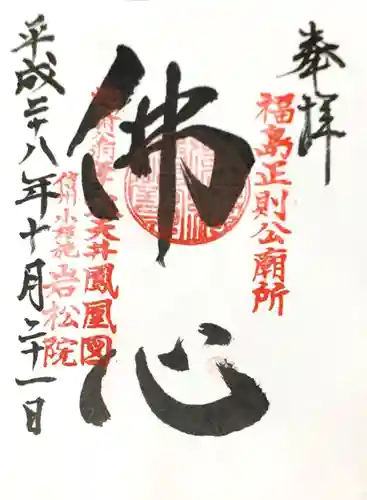 奉拝
福島正則公廟所
佛心
天井鳳凰図
信州小布施
岩松院
平成二十八年十月二十一日